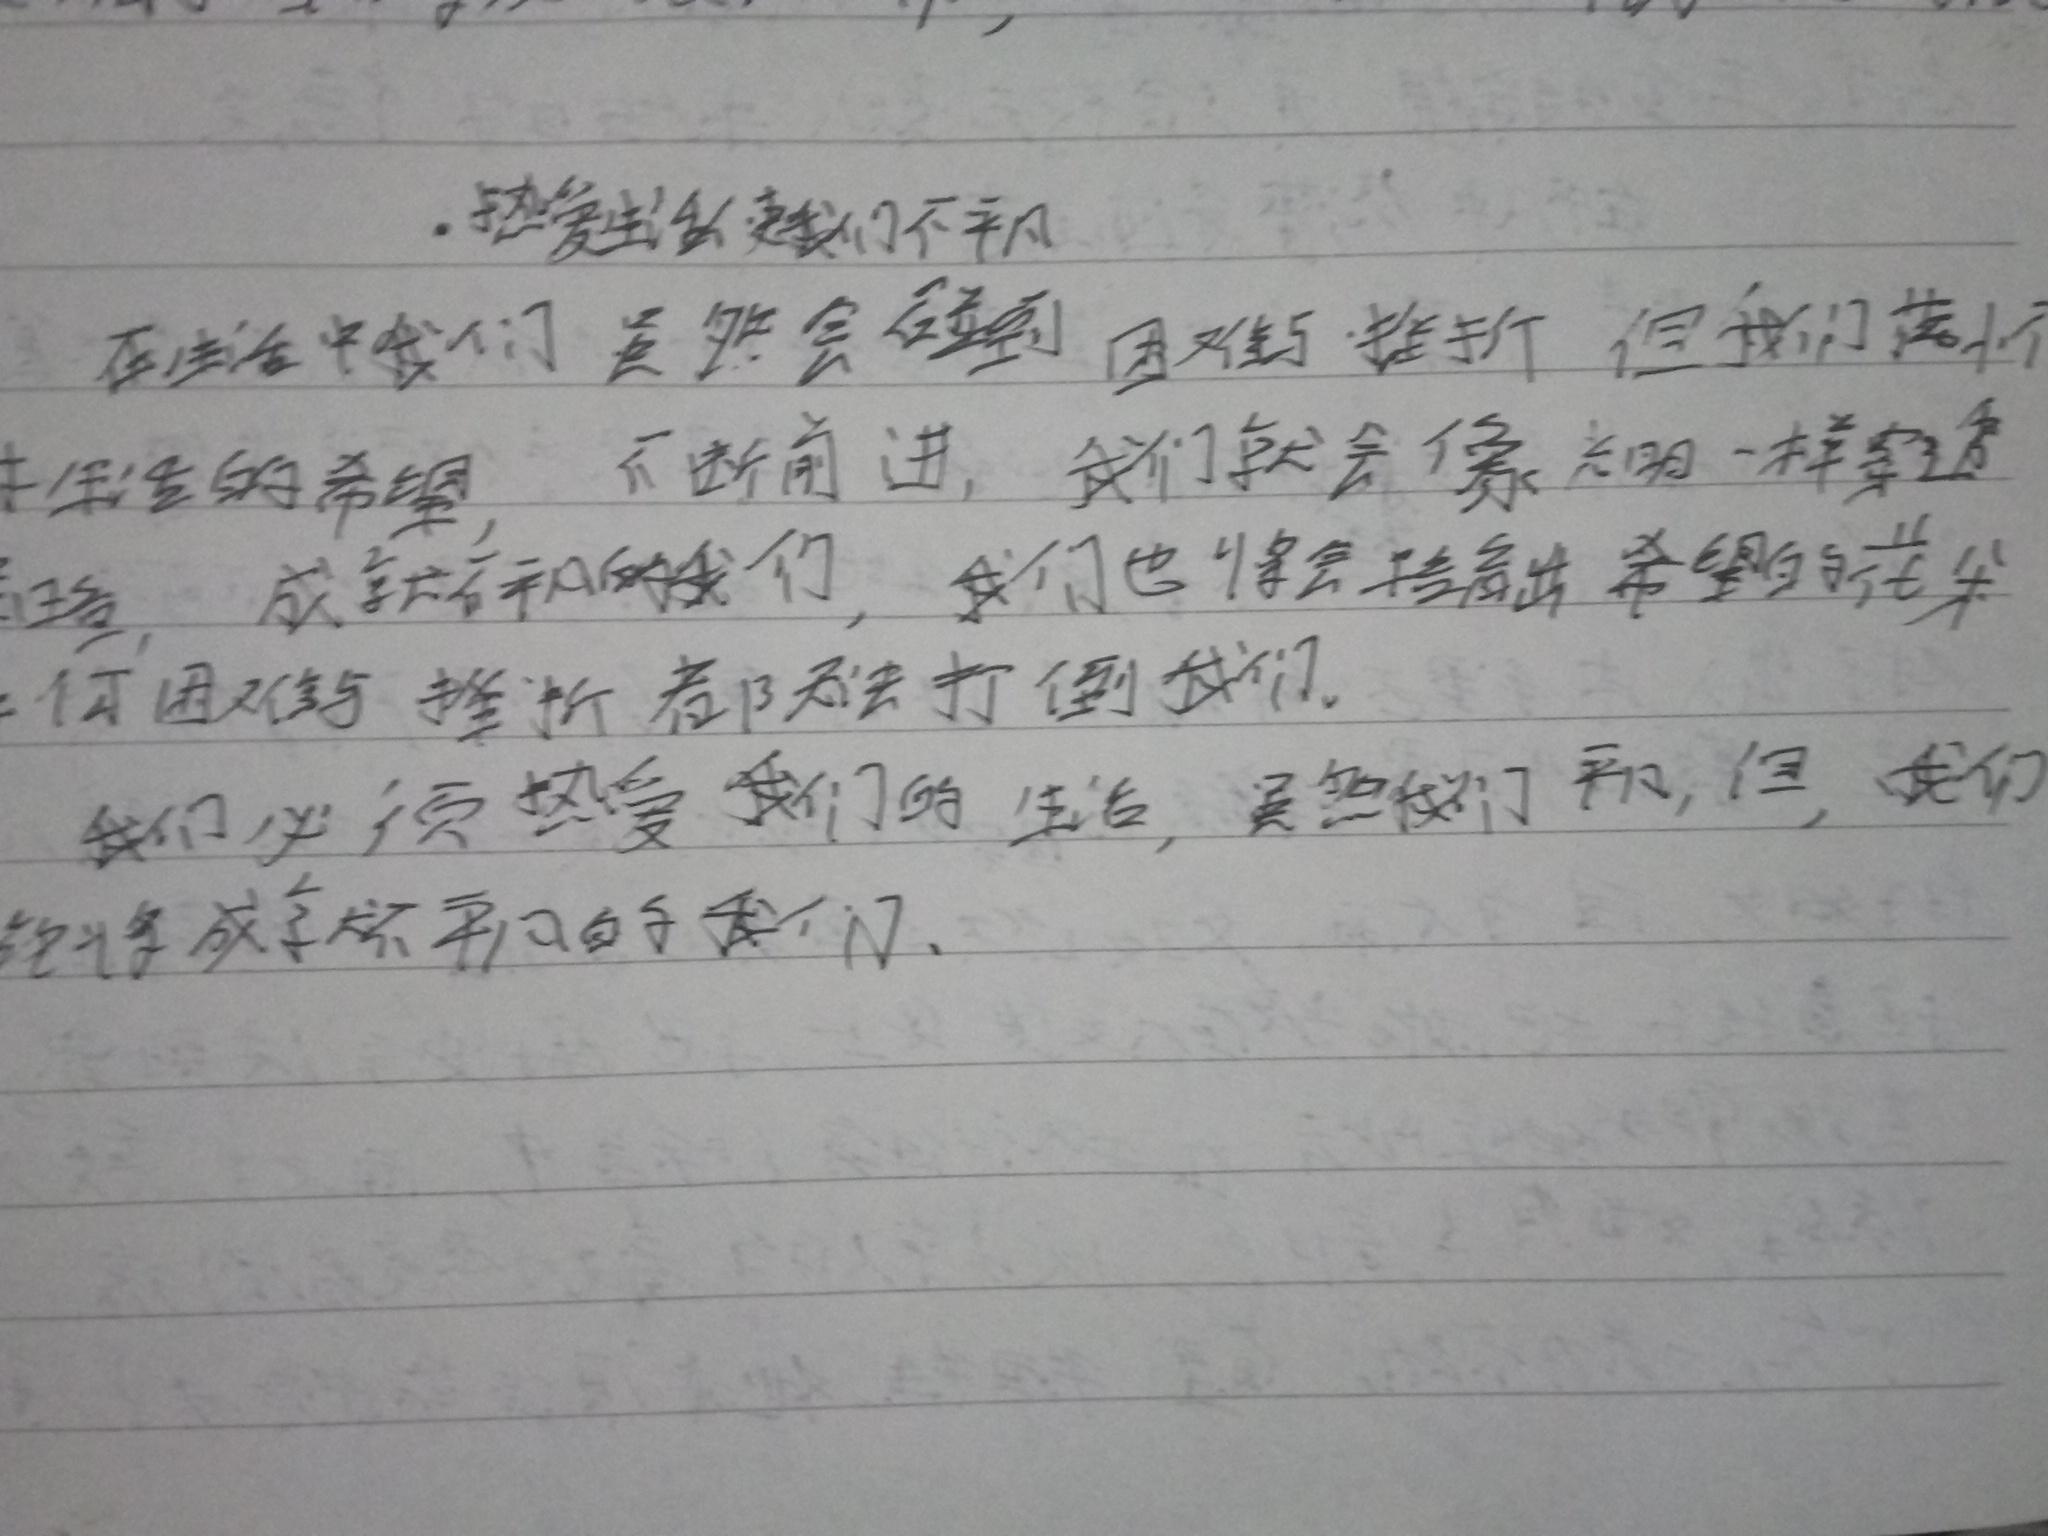 ·热爱生活使我们不平凡
在生活中我们虽然会碰到困难与挫折 但我们满怀
生活的希望, 不断前进, 我们就会像光明一样穿过
成就不平凡的我们, 我们也将会培育出希望的花朵
何困难与挫折都无法打倒我们。
我们必须热爱我们的生活, 虽然我们平凡, 但, 我们
终将成就不平凡的我们.